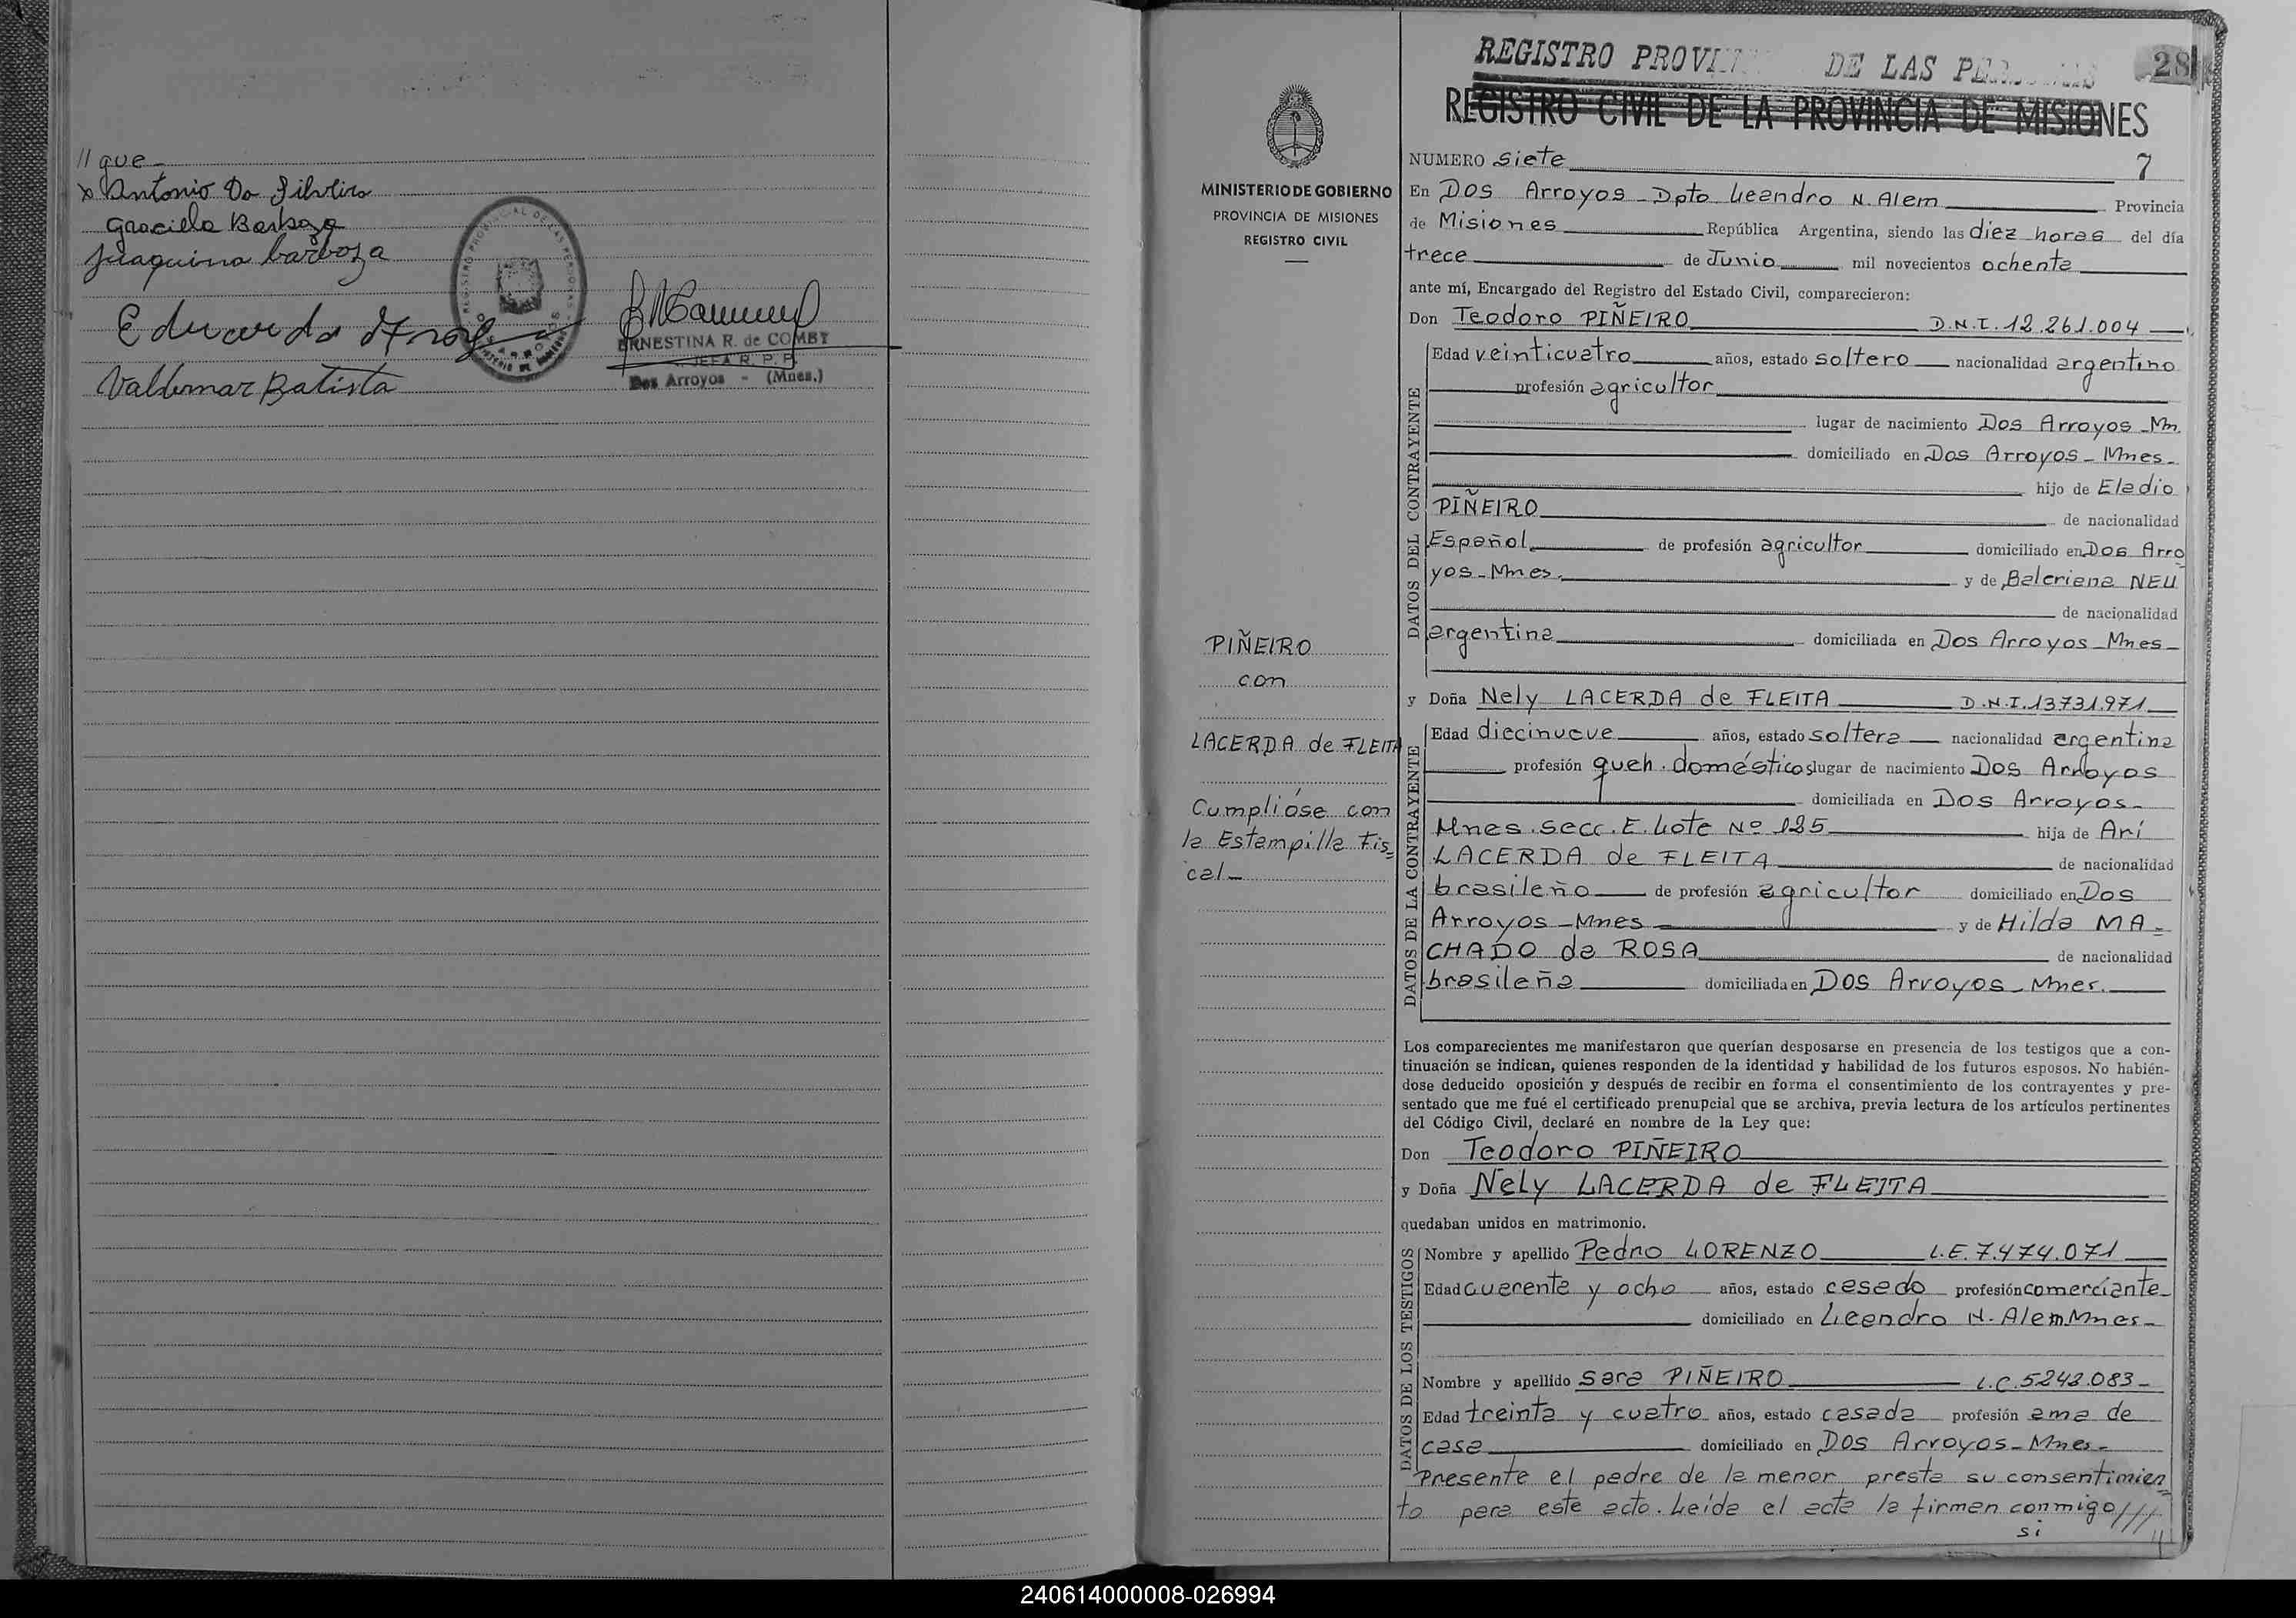 // que
x Antonio Da Silveira
Graciela Barboza
Juaquina barboza
Eduardo
Valdemar Batista
ERNESTINA R. de COMBY
JEFA R. P. P.
Dos Arroyos - (Mnes.)
REGISTRO DE LAS
28
REGISTRO CIVIL DE LA PROVINCIA DE MISIONES
MINISTERIO DE GOBIERNO
PROVINCIA DE MISIONES
REGISTRO CIVIL
PIÑEIRO
con
LACERDA de FLEITA
Cumplióse con
la Estampilla Fis=
cal_
NUMERO siete 7
En Dos Arroyos_Dpto Leandro N. Alem Provincia
de Misiones República Argentina, siendo las diez horas del día
trece de Junio mil novecientos ochenta
ante mí, Encargado del Registro del Estado Civil, comparecieron:
Don Teodoro PIÑEIRO D.N.I. 12.261.004
DATOS DEL CONTRAYENTE
Edad veinticuatro años, estado soltero nacionalidad argentino
profesión agricultor
lugar de nacimiento Dos Arroyos_Mn.
domiciliado en Dos Arroyos_Mnes_
hijo de Eladio
PIÑEIRO de nacionalidad
Español de profesión agricultor domiciliado en Dos Arro
yos_Mnes. y de Baleriana NEU
de nacionalidad
argentina domiciliada en Dos Arroyos_Mnes_
y Doña Nely LACERDA de FLEITA D.N.I. 13731.971
DATOS DE LA CONTRAYENTE
Edad diecinueve años, estado soltera nacionalidad argentina
profesión queh. domésticos lugar de nacimiento Dos Arroyos
domiciliada en Dos Arroyos_
Mnes. secc. E. Lote Nº 125 hija de Arí
LACERDA de FLEITA de nacionalidad
brasileño de profesión agricultor domiciliado en Dos
Arroyos_Mnes y de Hilda MA=
CHADO da ROSA de nacionalidad
brasileña domiciliada en Dos Arroyos_Mnes.
Los comparecientes me manifestaron que querían desposarse en presencia de los testigos que a con-
tinuación se indican, quienes responden de la identidad y habilidad de los futuros esposos. No habién-
dose deducido oposición y después de recibir en forma el consentimiento de los contrayentes y pre-
sentado que me fué el certificado prenupcial que se archiva, previa lectura de los artículos pertinentes
del Código Civil, declaré en nombre de la Ley que:
Don Teodoro PIÑEIRO
y Doña Nely LACERDA de FLEITA
quedaban unidos en matrimonio.
DATOS DE LOS TESTIGOS
Nombre y apellido Pedro LORENZO L.E. 7.474.071
Edad cuarenta y ocho años, estado casado profesión comerciante_
domiciliado en Leandro N. Alem.Mnes_
Nombre y apellido Sara PIÑEIRO L.C. 5242.083_
Edad treinta y cuatro años, estado casada profesión ama de
casa domiciliado en Dos Arroyos_Mnes_
Presente el padre de la menor presta su consentimien=
to para este acto. Leída el acta la firman conmigo///
si
240614000008-026994